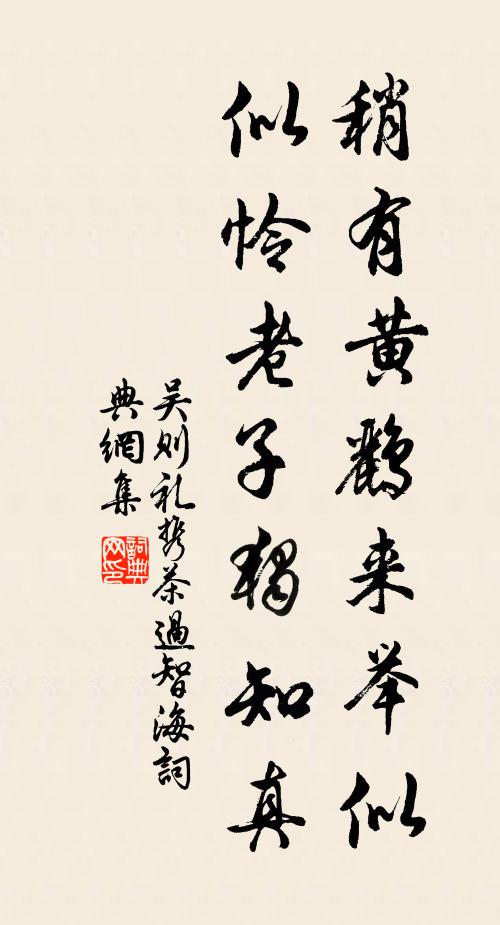 稍有黄鹂来举似
似怜老子独知真
吴则礼携茶過智海詞
典網集
詞典网印